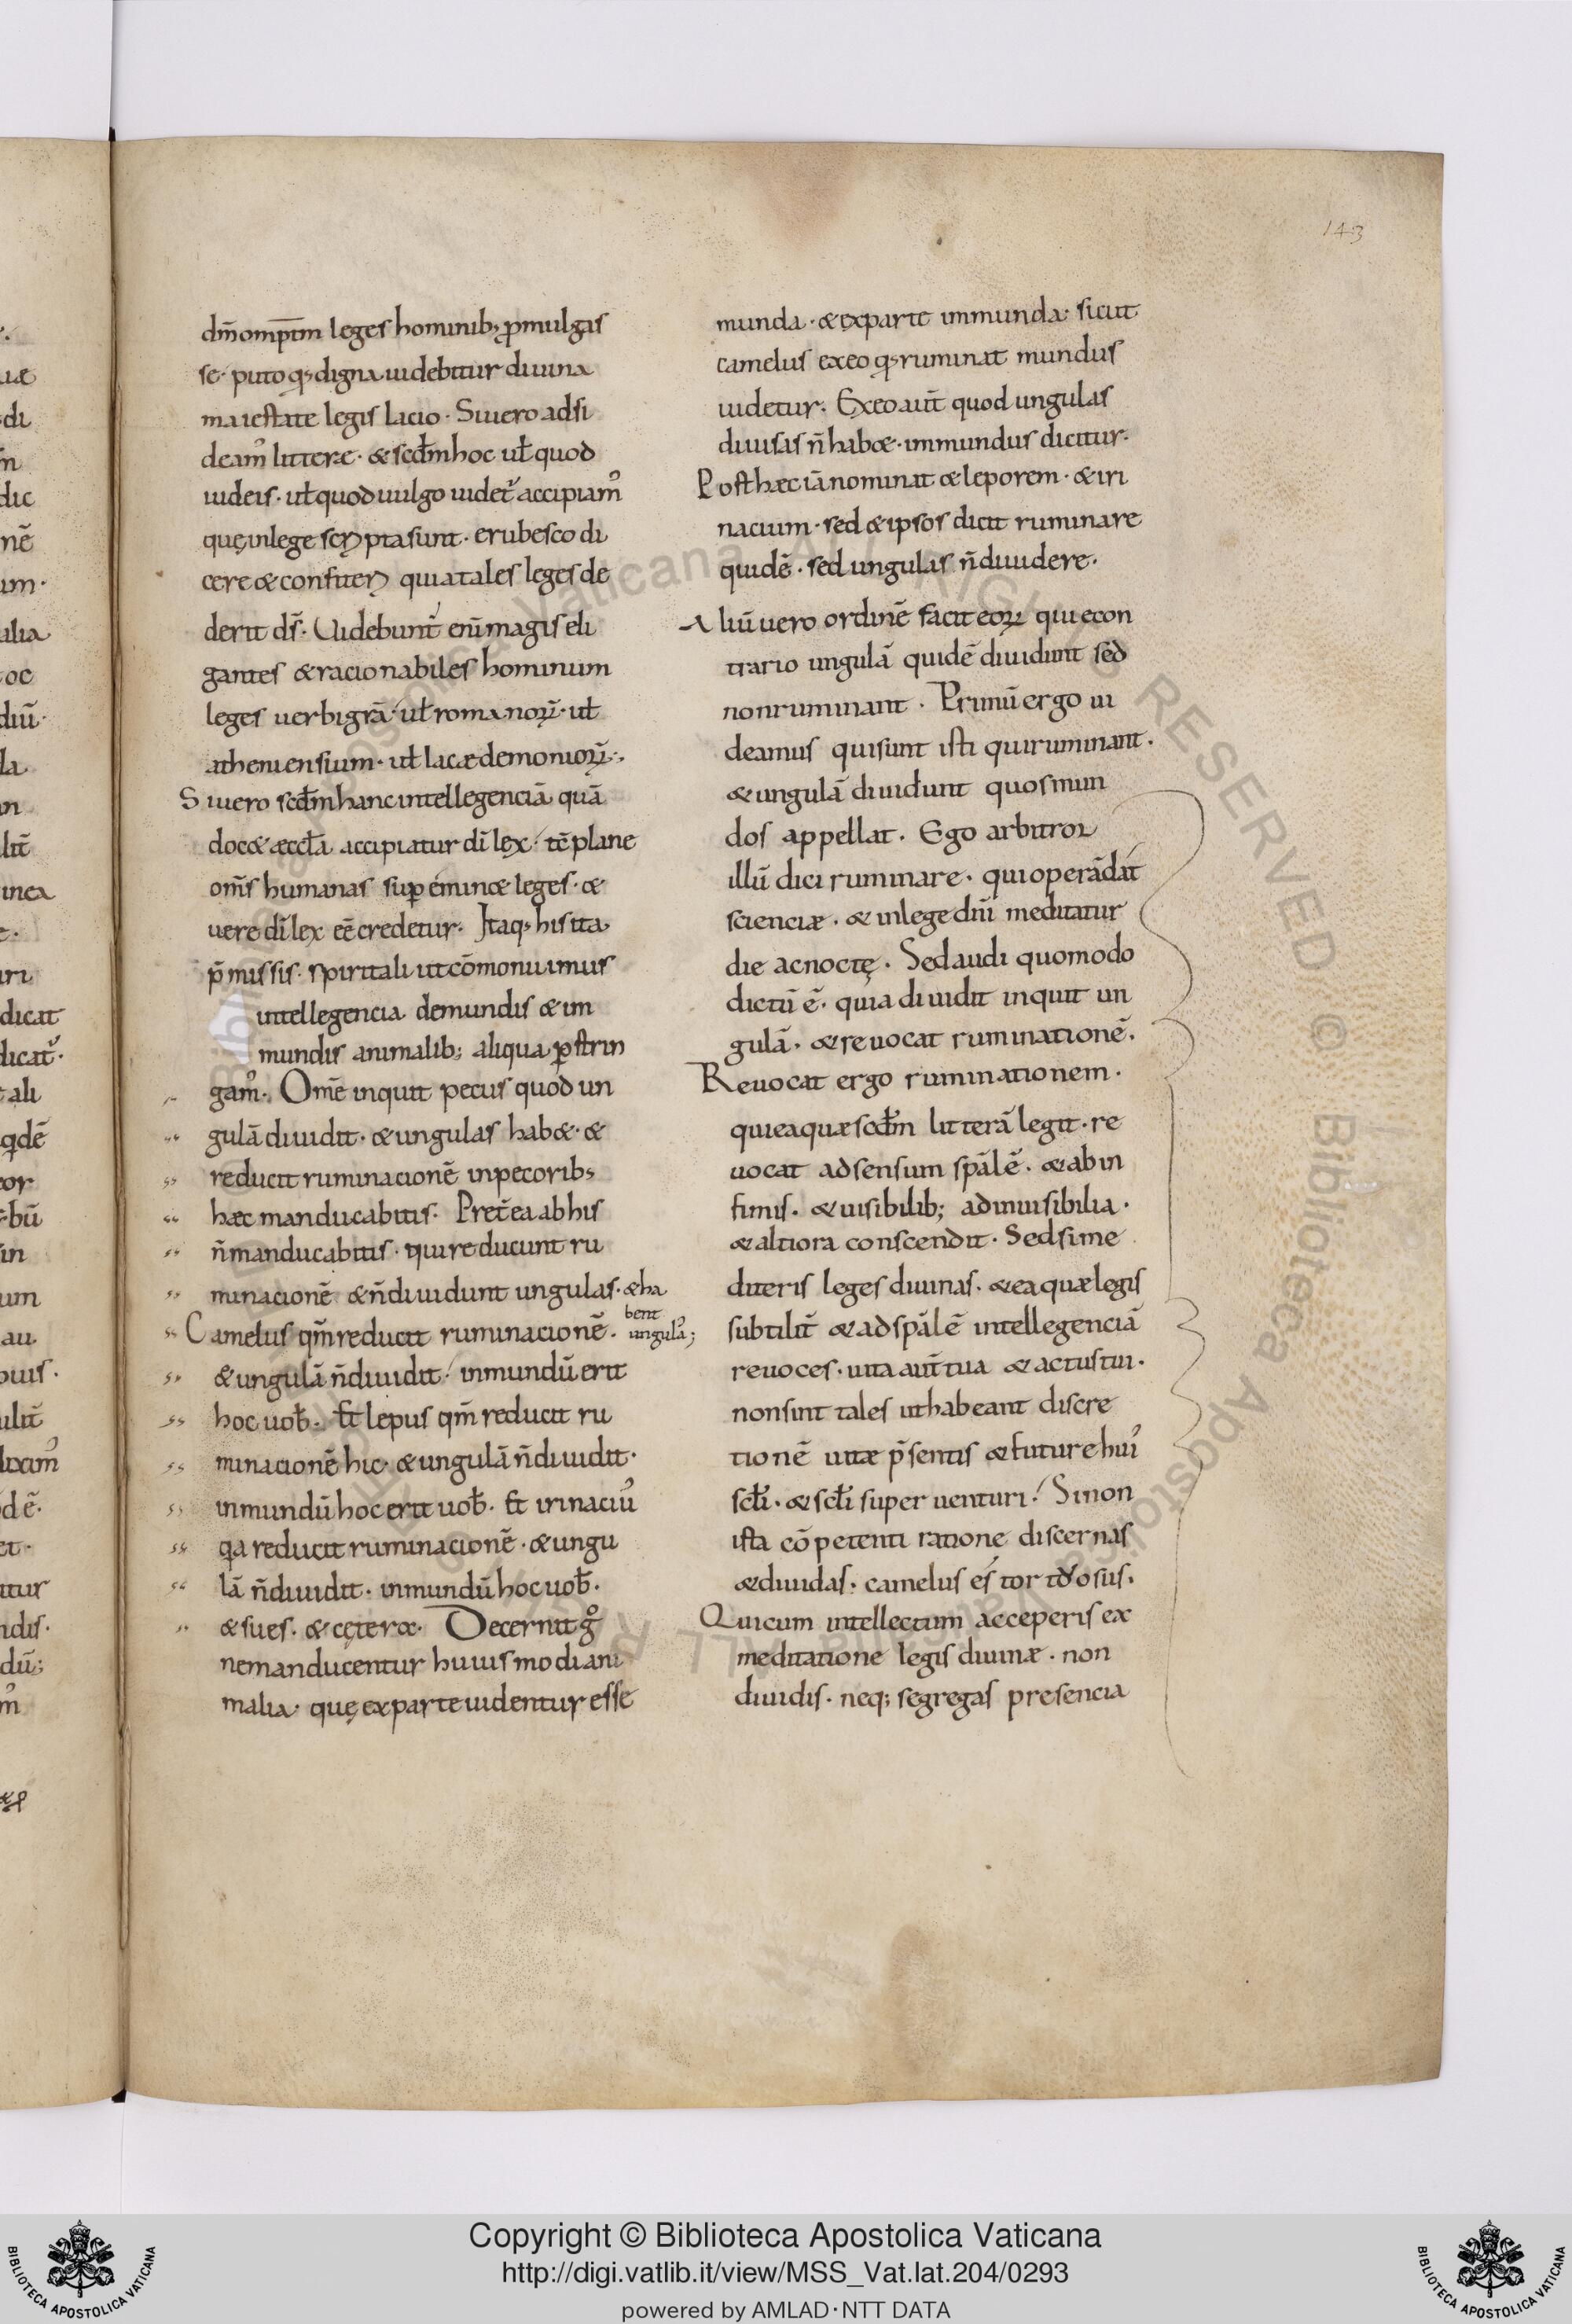 143
dm̄ omp̄tm̄ leges hominib; ꝓmulgas
se· puto qs digna uidebitur diuina
maiestate legis lacio· Si uero adsi
deam᾽ litterę· & scd̄m hoc ut̄ quod
iudeis· ut̄ quod uulgo uidet᾽ accipiam᾽
quę in lege scrypta sunt· erubesco di
cere & confiteri quia tales leges de
derit d̄s· Uidebunt᾽ enī magis eli
gantes & racionabiles hominum
leges uerbi grā· ut̄ romanoꝝ· ut̄
atheniensium· ut̄ lacædemonioꝝ·
Si uero scd̄m hanc intellegenciā quā
doc& æccl̄a accipiatur dī lex· tē plane
om̄s humanas suꝑemin& leges· &
uere dī lex eē credetur· Itaq; his ita
p̄missis· spiritali ut cōmonuimus
intellegencia de mundis & im
mundis animalib; aliqua ꝑstrin
gam᾽· Om̄e inquit pecus quod un
gulā diuidit· & ungulas hab&· &
reducit ruminacionē in pecorib;
hæc manducabitis· Pret̄ea ab his
n̄ manducabitis· qui reducunt ru
minacionē & n̄ diuidunt ungulas· & ha
bent
Camelus qm̄ reducit ruminacionē· ungulā;
& ungulā n̄ diuidit· inmundū erit
hoc uob̄· Et lepus qm̄ reducit ru
minacionē hic· & ungulā n̄ diuidit·
inmundū hoc erit uob̄· Et irinaciū
qa reducit ruminacionē· & ungu
lā n̄ diuidit· inmundū hoc uob̄·
& sues· & cęter&· Decernit gͦ
ne manducentur huiusmodi ani
malia· quę ex parte uidentur esse
munda· & ex parte immunda· sicut
camelus ex eo qs ruminat mundus
uidetur· Ex eo aut̄ quod ungulas
diuisas n̄ hab&· immundus dicitur·
Post hæc iā nominat & leporem· & iri
nacium· sed & ipsos dicit ruminare
quidē· sed ungulas n̄ diuidere·
Aliū uero ordinē facit eoꝝ qui econ
trario ungulā quidē diuidunt sed
non ruminant· Primū ergo ui
deamus qui sunt isti qui ruminant·
& ungulā diuidunt quos mun
dos appellat· Ego arbitror
illū dici ruminare· qui operā dat
scienciæ· & in lege dn̄i meditatur
die ac noctę· Sed audi quomodo
dictū ē· quia diuidit inquit un
gulā· & reuocat ruminationē·
Reuocat ergo ruminationem·
qui ea quæ scd̄m litterā legit· re
uocat ad sensum spālē· & ab in
fimis· & uisibilib; ad inuisibilia·
& altiora conscendit· Sed si me
diteris leges diuinas· & ea quæ legis
subtilit̄ & ad spālē intellegenciā
reuoces· uita aut̄ tua & actus tui·
non sint tales ut habeant discre
tionē uitæ p̄sentis & future hui᾽
scl̄i· & scl̄i super uenturi· Si non
ista cōpetenti ratione discernas
& diuidas· camelus es tortuosus·
Qui cum intellectum acceperis ex
meditatione legis diuinæ· non
diuidis· neq; segregas presencia
Copyright © Biblioteca Apostolica Vaticana
http://digi.vatlib.it/view/MSS_Vat.lat.204/0293
powered by AMLAD·NTT DATA
BIBLIOTECA APOSTOLICA VATICANA
BIBLIOTECA APOSTOLICA VATICANA